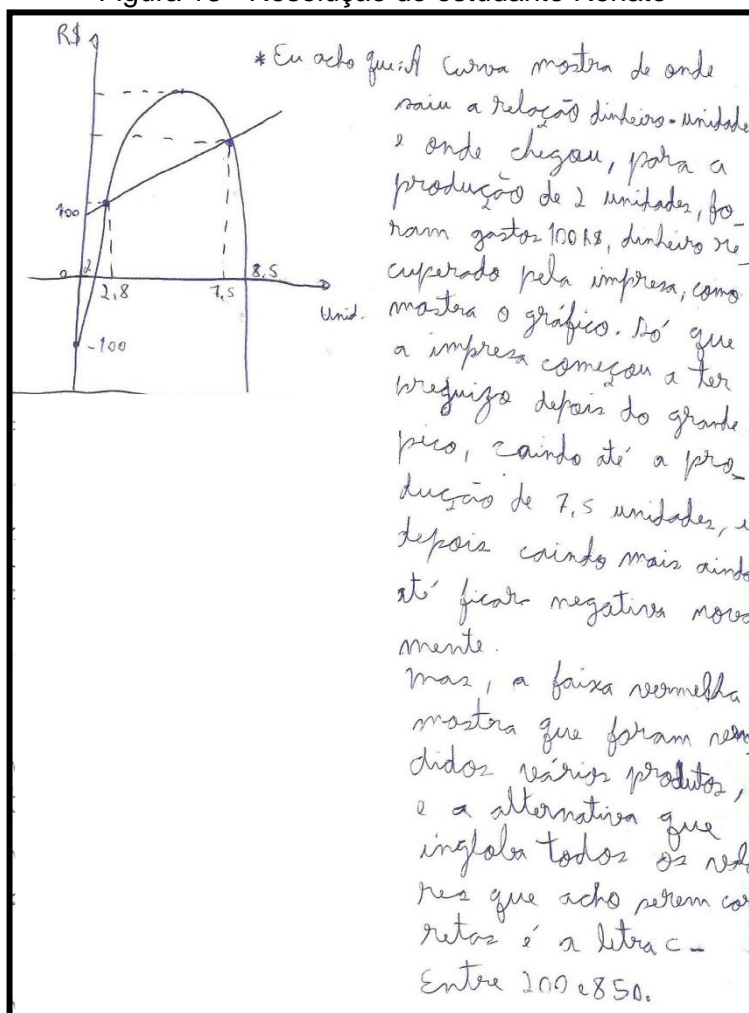 Figura 13 - Resolução do estudante Renato
R$
100
0
2
2,8
7,5
8,5
Unid.
-100
* Eu acho que: A curva mostra de onde
saiu a relação dinheiro-unidade
e onde chegou, para a
produção de 2 unidades, fo-
ram gastos 100 R$, dinheiro re-
cuperado pela impresa, como
mostra o gráfico. Só que
a impresa começou a ter
preguizo depois do grande
pico, caindo até a pro-
dução de 7,5 unidades, e
depois caindo mais ainda
até ficar negativa nova
mente.
mas, a faixa vermelha
mostra que foram ven
didos vários produtos,
e a alternativa que
ingloba todos os valo
res que acho serem cor
retas é a letra C -
Entre 200 e 850.